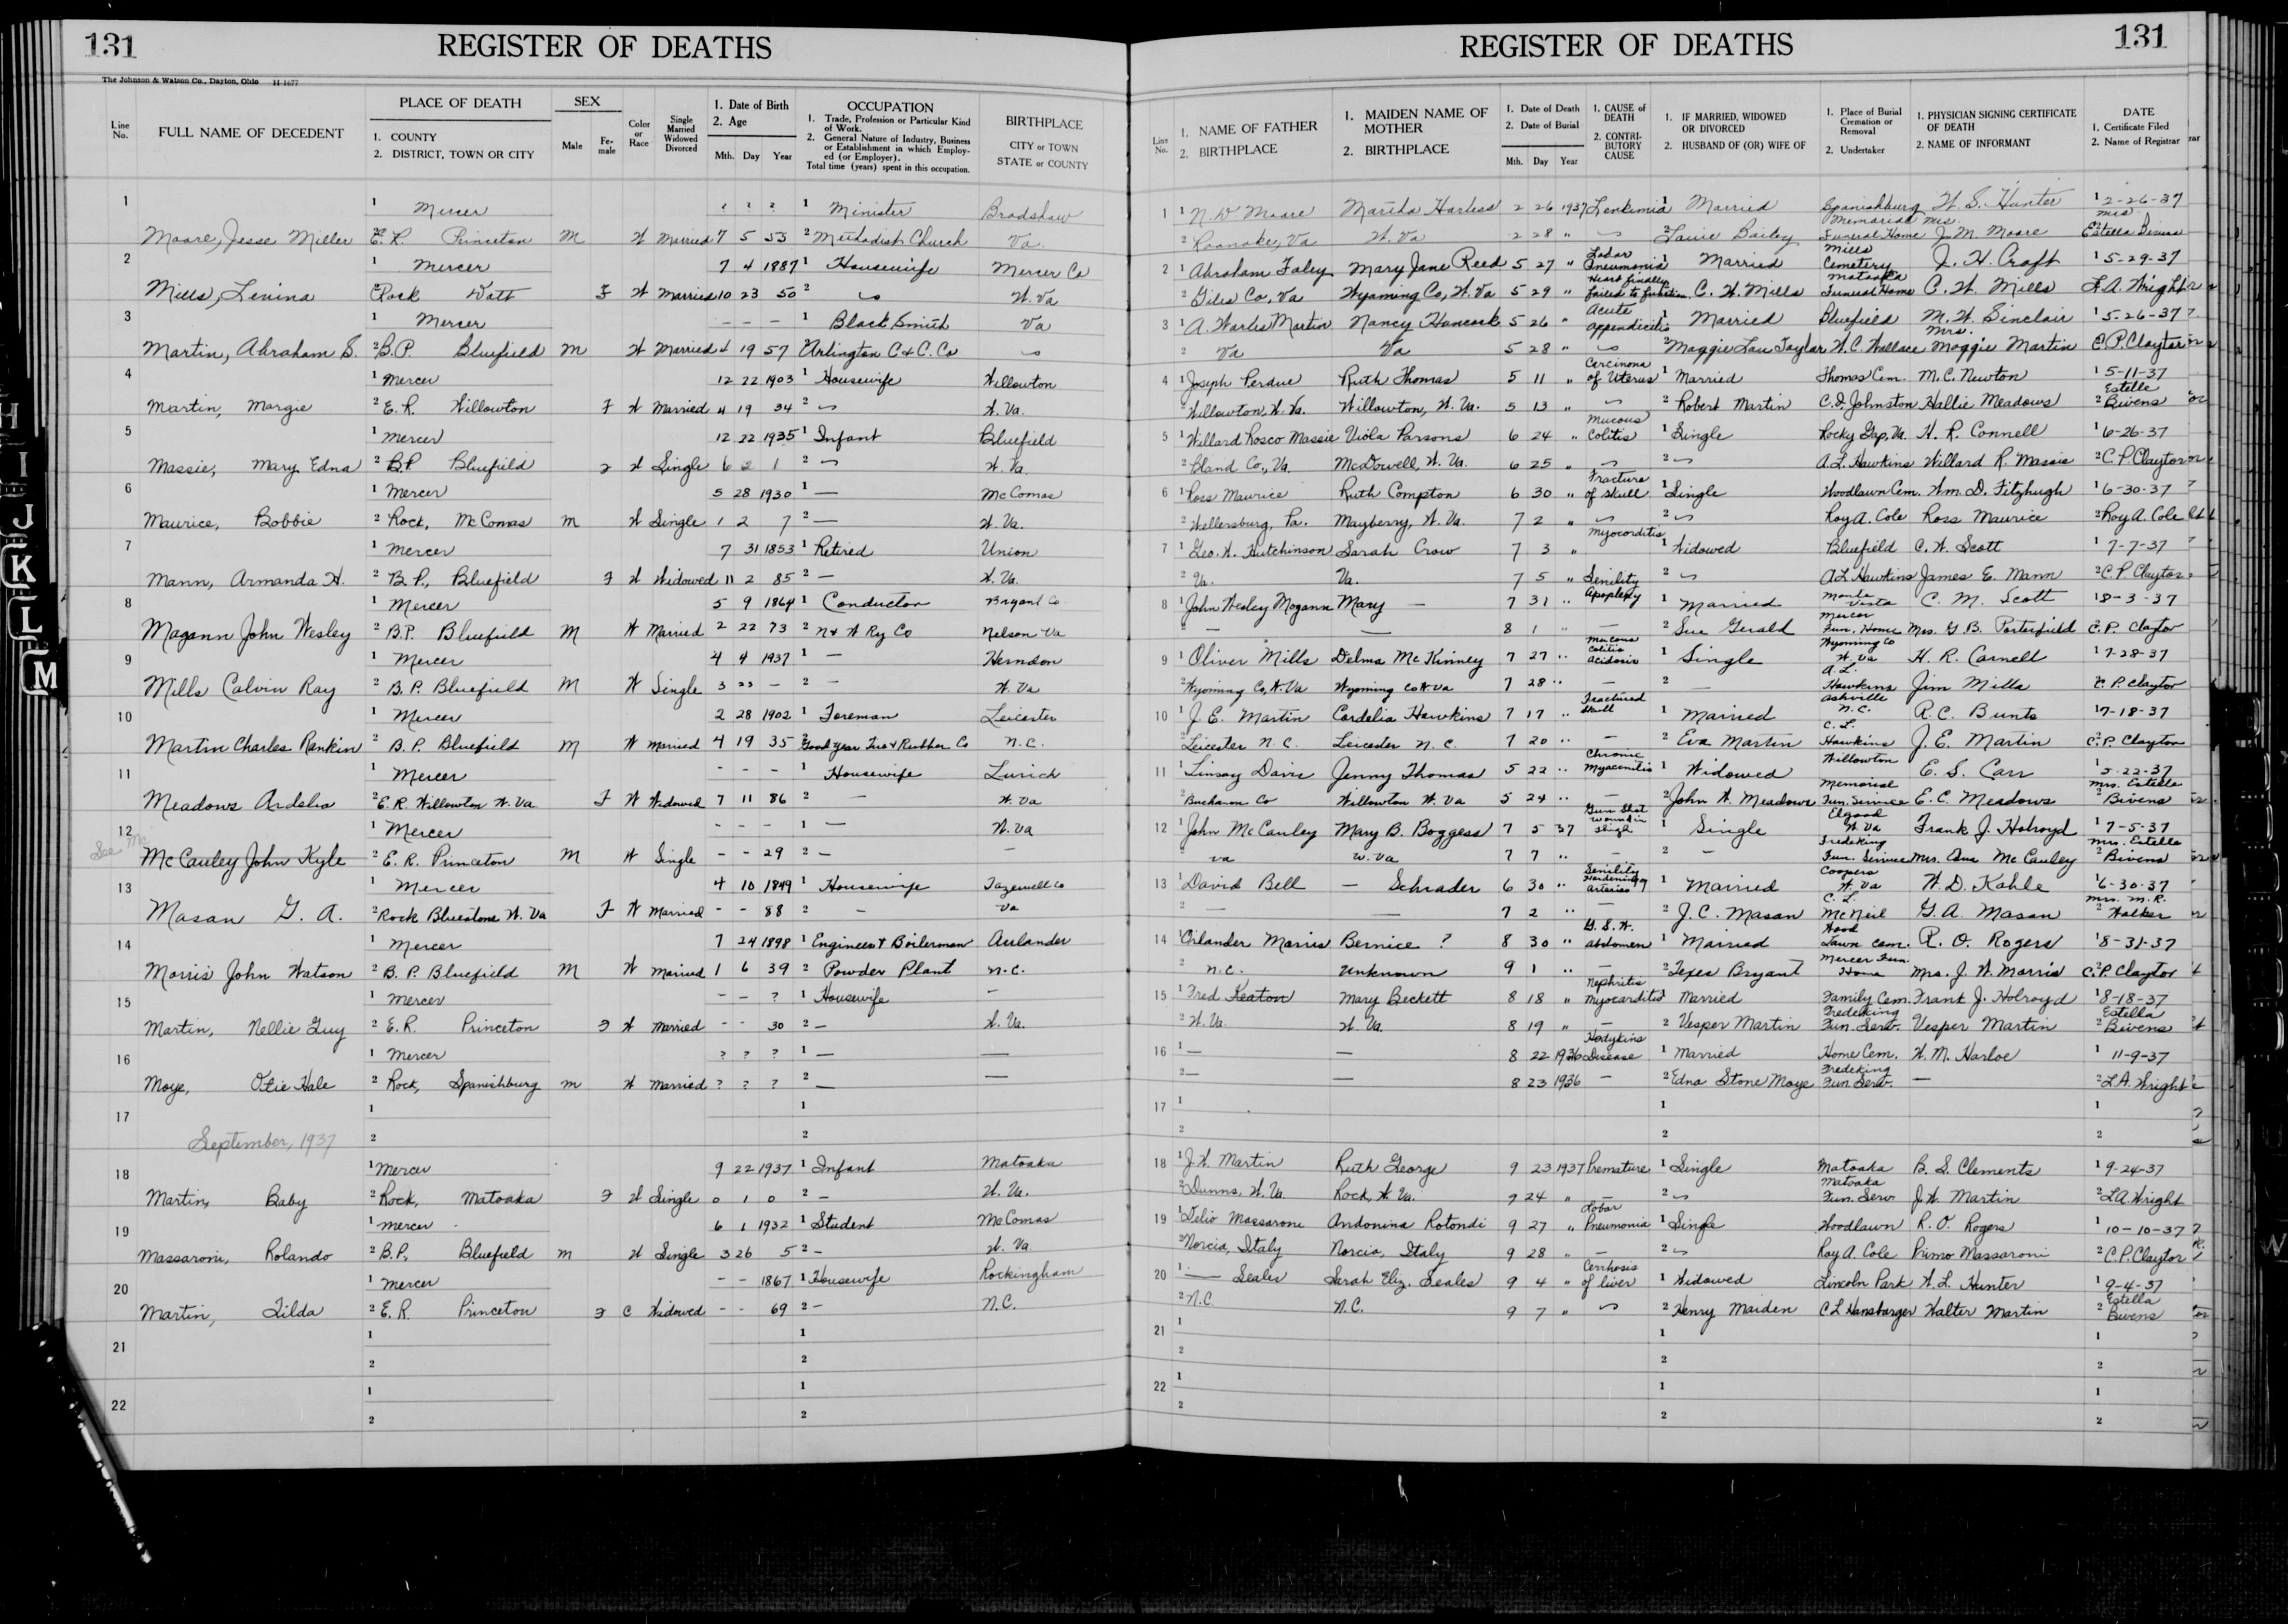 131 REGISTER OF DEATHS
The Johnson & Watson Co., Dayton, Ohio H-1677
Line No. FULL NAME OF DECEDENT PLACE OF DEATH 1. COUNTY 2. DISTRICT, TOWN OR CITY SEX Male Female Color or Race Single Married Widowed Divorced 1. Date of Birth 2. Age Mth. Day Year OCCUPATION 1. Trade, Profession or Particular Kind of Work. 2. General Nature of Industry, Business or Establishment in which Employed (or Employer). Total time (years) spent in this occupation. BIRTHPLACE CITY or TOWN STATE or COUNTY
1 1 Mercer ? ? ? 1 Minister Bradshaw
Moore, Jesse Miller 2 E. R. Princeton M W Married 7 5 53 2 Methodist Church Va.
2 1 Mercer 7 4 1887 1 Housewife Mercer Co
Mills, Lenina Rock Watt F W Married 10 23 50 2 W. Va
3 1 Mercer – – – 1 Black Smith Va
Martin, Abraham S. 2 B.P. Bluefield M W Married 4 19 57 Arlington C & C. Co
4 1 Mercer 12 22 1903 1 Housewife Willowton
Martin, Margie 2 E. R. Willowton F W Married 4 19 34 2 W. Va.
5 1 Mercer 12 22 1935 1 Infant Bluefield
Massie, Mary Edna 2 B.P. Bluefield F W Single 6 2 1 2 W. Va
6 1 Mercer 5 28 1930 1 — McComas
Maurice, Bobbie 2 Rock, McComas M W Single 1 2 7 2 — W. Va.
7 1 Mercer 7 31 1853 1 Retired Union
Mann, Armanda H. 2 B.P., Bluefield F W Widowed 11 2 85 2 — W. Va.
8 1 Mercer 5 9 1864 1 Conductor Bryant Co.
Magann John Wesley 2 B.P. Bluefield M W Married 2 22 73 2 N & W Ry Co Nelson Va
9 1 Mercer 4 4 1937 1 — Herndon
Mills Calvin Ray 2 B.P. Bluefield M W Single 3 23 – 2 – W. Va
10 1 Mercer 2 28 1902 1 Foreman Leicester
Martin Charles Rankin 2 B.P. Bluefield M W Married 4 19 35 2 Good Year Tire & Rubber Co N.C.
11 1 Mercer - - - 1 Housewife Lurich
Meadows Ardelia 2 E.R. Willowton W. Va F W Widowed 7 11 86 2 — W. Va
12 1 Mercer - - - 1 — W. Va
See Mc
McCauley John Kyle 2 E. R. Princeton M W Single - - 29 2 – –
13 1 Mercer 4 10 1849 1 Housewife Tazewell Co
Mason G. A. 2 Rock Bluestone W. Va F W Married - - 88 2 – Va
14 1 Mercer 7 24 1898 1 Engineer & Boilerman Aulander
Morris John Watson 2 B. P. Bluefield M W Married 1 6 39 2 Powder Plant N.C.
15 1 Mercer - - ? 1 Housewife –
Martin, Nellie Guy 2 E. R. Princeton F W Married - - 30 2 – W. Va.
16 1 Mercer ? ? ? 1 — —
Moye, Otie Hale 2 Rock, Spanishburg M W Married ? ? ? 2 — —
17 1 1
September, 1937 2 2
18 1 Mercer 9 22 1937 1 Infant Matoaka
Martin, Baby 2 Rock, Matoaka F W Single 0 1 0 2 – W. Va.
19 1 Mercer 6 1 1932 1 Student McComas
Massaroni, Rolando 2 B.P., Bluefield M W Single 3 26 5 2 – W. Va
20 1 Mercer - - 1867 1 Housewife Rockingham
Martin, Tilda 2 E. R. Princeton F C Widowed - - 69 2 – N.C.
21 1 1
2 2
22 1 1
2 2
REGISTER OF DEATHS 131
Line No. 1. NAME OF FATHER 2. BIRTHPLACE 1. MAIDEN NAME OF MOTHER 2. BIRTHPLACE 1. Date of Death 2. Date of Burial Mth. Day Year 1. CAUSE of DEATH 2. CONTRIBUTORY CAUSE 1. IF MARRIED, WIDOWED OR DIVORCED 2. HUSBAND OF (OR) WIFE OF 1. Place of Burial Cremation or Removal 2. Undertaker 1. PHYSICIAN SIGNING CERTIFICATE OF DEATH 2. NAME OF INFORMANT DATE 1. Certificate Filed 2. Name of Registrar
1 1 N. W. Moore Martha Harless 2 26 1937 Leukemia 1 Married Spanishburg W. S. Hunter 1 2-26-37
2 Roanoke, Va W. Va 2 28 " 2 Laurie Bailey Memorial Funeral Home Mrs. J. M. Moore Mrs Estella Bivens
2 1 Abraham Faley Mary Jane Reed 5 27 " Lobar Pneumonia 1 Married Mills Cemetery J. H. Craft 1 5-29-37
2 Giles Co, Va Wyoming Co, W. Va 5 29 " Heart finally failed to function C. W. Mills Matoaka Funeral Home C. W. Mills L.A. Wright
3 1 A. Warles Martin Nancy Hancock 5 26 " Acute appendicitis 1 Married Bluefield M. W. Sinclair 1 5-26-37
2 Va Va 5 28 " 2 Maggie Lou Taylor W. C. Wallace Mrs. Maggie Martin C.P. Claytor
4 1 Joseph Perdue Ruth Thomas 5 11 " Carcinona of Uterus 1 Married Thomas Cem. M. C. Newton 1 5-11-37
2 Willowton, W. Va. Willowton, W. Va. 5 13 " 2 Robert Martin C.D. Johnston Hallie Meadows 2 Estelle Bivens
5 1 Willard Rosco Massie Viola Parsons 6 24 " Mucous Colitis 1 Single Rocky Gap, Va. H. R. Connell 1 6-26-37
2 Bland Co., Va. McDowell, W. Va. 6 25 " 2 A. L. Hawkins Willard R. Massie 2 C.P. Claytor
6 1 Ross Maurice Ruth Compton 6 30 " Fracture of skull 1 Single Woodlawn Cem. Wm. D. Fitzhugh 1 6-30-37
2 Wellersburg, Pa. Mayberry, W. Va. 7 2 " 2 Roy A. Cole Ross Maurice 2 Roy A. Cole
7 1 Geo. W. Hutchinson Sarah Crow 7 3 " Myocorditis 1 Widowed Bluefield C. W. Scott 1 7-7-37
2 Va. Va. 7 5 " Senility 2 A L. Hawkins James E. Mann 2 C.P. Claytor
8 1 John Wesley Mogann Mary — 7 31 " Apoplexy 1 Married Monta Vista C. M. Scott 1 8-3-37
2 — — 8 1 " — 2 Sue Gerald Mercer Fun. Home Mrs. G. B. Porterfield C.P. Claytor
9 1 Oliver Mills Delma McKinney 7 27 " Mucous Colitis Acidosis 1 Single Wyoming Co W. Va H. R. Connell 1 7-28-37
2 Wyoming Co, W. Va Wyoming Co W Va 7 28 " – 2 — A. L. Hawkins Jim Mills C.P. Claytor
10 1 J. E. Martin Cordelia Hawkins 7 17 " Fractured skull 1 Married Ashville N.C. R.C. Bunts 1 7-18-37
2 Leicester N.C. Leicester N.C. 7 20 " – 2 Eva Martin C. L. Hawkins J. E. Martin C.P. Claytor
11 1 Linsay Davis Jenny Thomas 5 22 " Chronic Myoconitis 1 Widowed Willowton E. S. Carr 1 5-22-37
2 Buchanon Co Willowton W. Va 5 24 " – 2 John W. Meadows Memorial Fun. Service E. C. Meadows Mrs. Estelle 2 Bivens
12 1 John McCauley Mary B. Boggess 7 5 37 Gun Shot wound in thigh 1 Single Elgood W Va Frank J. Holroyd 1 7-5-37
2 Va W. Va 7 7 " – 2 – Fredeking Fun. Service Mrs. Ona McCauley Mrs. Estelle 2 Bivens
13 1 David Bell — Schrader 6 30 " Senility Hardening of arteries 1 Married Coopers W. Va W. D. Kahle 1 6-30-37
2 — — 7 2 " — 2 J. C. Mason C. L. McNeil G. A. Mason Mrs. M. R. 2 Walker
14 1 Orlander Morris Bernice ? 8 30 " G. S. W. abdomen 1 Married Wood Lawn Cem. R. O. Rogers 1 8-31-37
2 N.C. Unknown 9 1 " — 2 Texes Bryant Mercer Fun. Home Mrs. J. W. Morris C.P. Claytor
15 1 Fred Keaton Mary Beckett 8 18 " Nephritis Myocarditis 1 Married Family Cem. Frank J. Holroyd 1 8-18-37
2 W. Va. W. Va. 8 19 " — 2 Vesper Martin Fredeking Fun. Serv. Vesper Martin 2 Estella Bivens
16 1 — — 8 22 1936 Hodykins Disease 1 Married Home Cem. W. M. Harloe 1 11-9-37
2 — — 8 23 1936 – 2 Edna Stone Moye Fredeking Fun Serv. — 2 L.A. Wright
17 1 1 1
2 2 2
18 1 J. W. Martin Ruth George 9 23 1937 Premature 1 Single Matoaka B. S. Clements 1 9-24-37
2 Dunns, W. Va Rock, W. Va. 9 24 " – 2 Matoaka Fun. Serv J. W. Martin 2 L.A. Wright
19 1 Delio Massaroni Andonina Rotondi 9 27 " Lobar Pneumonia 1 Single Woodlawn R. O. Rogers 1 10-10-37
2 Norcia, Italy Norcia, Italy 9 28 " – 2 Roy A. Cole Primo Massaroni 2 C.P. Claytor
20 1 — Seales Sarah Eliz. Seales 9 4 " Cerrhosis of liver 1 Widowed Lincoln Park W. L. Hunter 1 9-4-37
2 N.C. N.C. 9 7 " 2 Henry Maiden C L Hansbarger Walter Martin 2 Estella Bivens
21 1 1 1
2 2 2
22 1 1 1
2 2 2
H
I
J
K
L
M